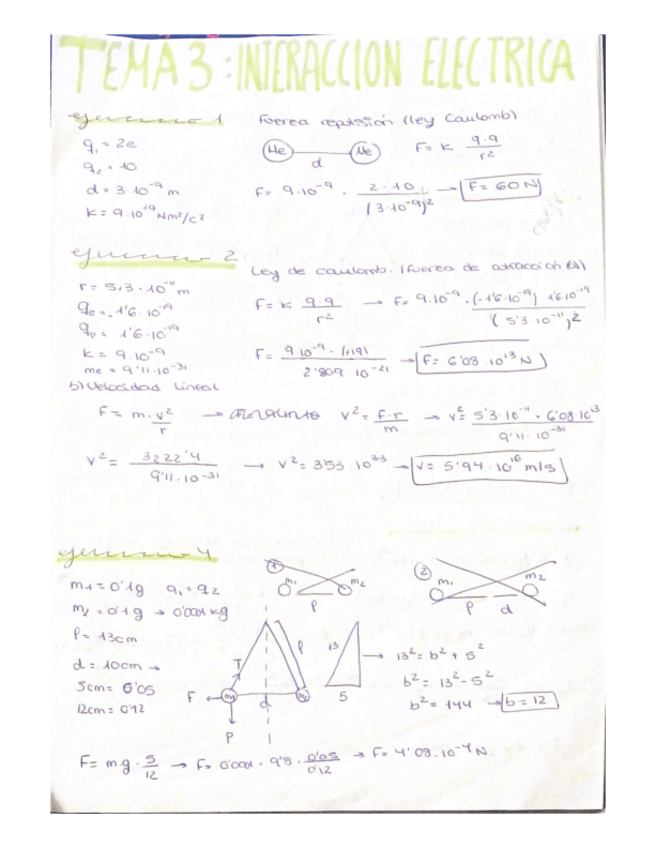 TEMA 3: INTERACCION ELECTRICA
ejercicio 1
Fuerza repulsión (ley Caulomb)
q₁ = 2e
q₂ = 10
d = 3·10⁻⁹ m
k = 9·10¹⁹ Nm²/c²
He He
d
F = k q·q / r²
F = 9·10⁻⁹ · 2·10 / (3·10⁻⁹)² → F = 60 N
ejercicio 2
Ley de caulomb. (fuerza de atracción
r = 5,3·10⁻¹¹ m
qe = -1'6·10⁻¹⁹
qp = 1'6·10⁻¹⁹
k = 9·10⁻⁹
me = 9'11·10⁻³¹
F = k q·q / r² → F = 9·10⁻⁹ · (-1'6·10⁻⁹) 1'6·10⁻¹⁹ / (5'3·10⁻¹¹)²
F = 9·10⁻⁹ · / 2'809·10⁻²¹ → F = 6'08·10¹³ N
b) Velocidad lineal
F = m·v²/r → v² = F·r/m → v² = 5'3·10⁻¹¹ · 6'08·10¹³ / 9'11·10⁻³¹
v² = 3222'4 / 9'11·10⁻³¹ → v² = 3'53·10³³ → v = 5'94·10¹⁶ m/s
ejercicio 4
m₁ = 0'1g q₁ = q₂
m₂ = 0'1g → 0'0001 kg
l = 13cm
d = 10cm →
5cm = 0'05
12cm = 0'12
1 m₁ m₂ l
2 m₁ m₂ l d
T l F m₁ d m₂ P
13 5
→ 13² = b² + 5²
b² = 13² - 5²
b² = 144 → b = 12
F = m·g · 5/12 → F = 0'0001 · 9'8 · 0'05/0'12 → F = 4'08·10⁻⁴ N